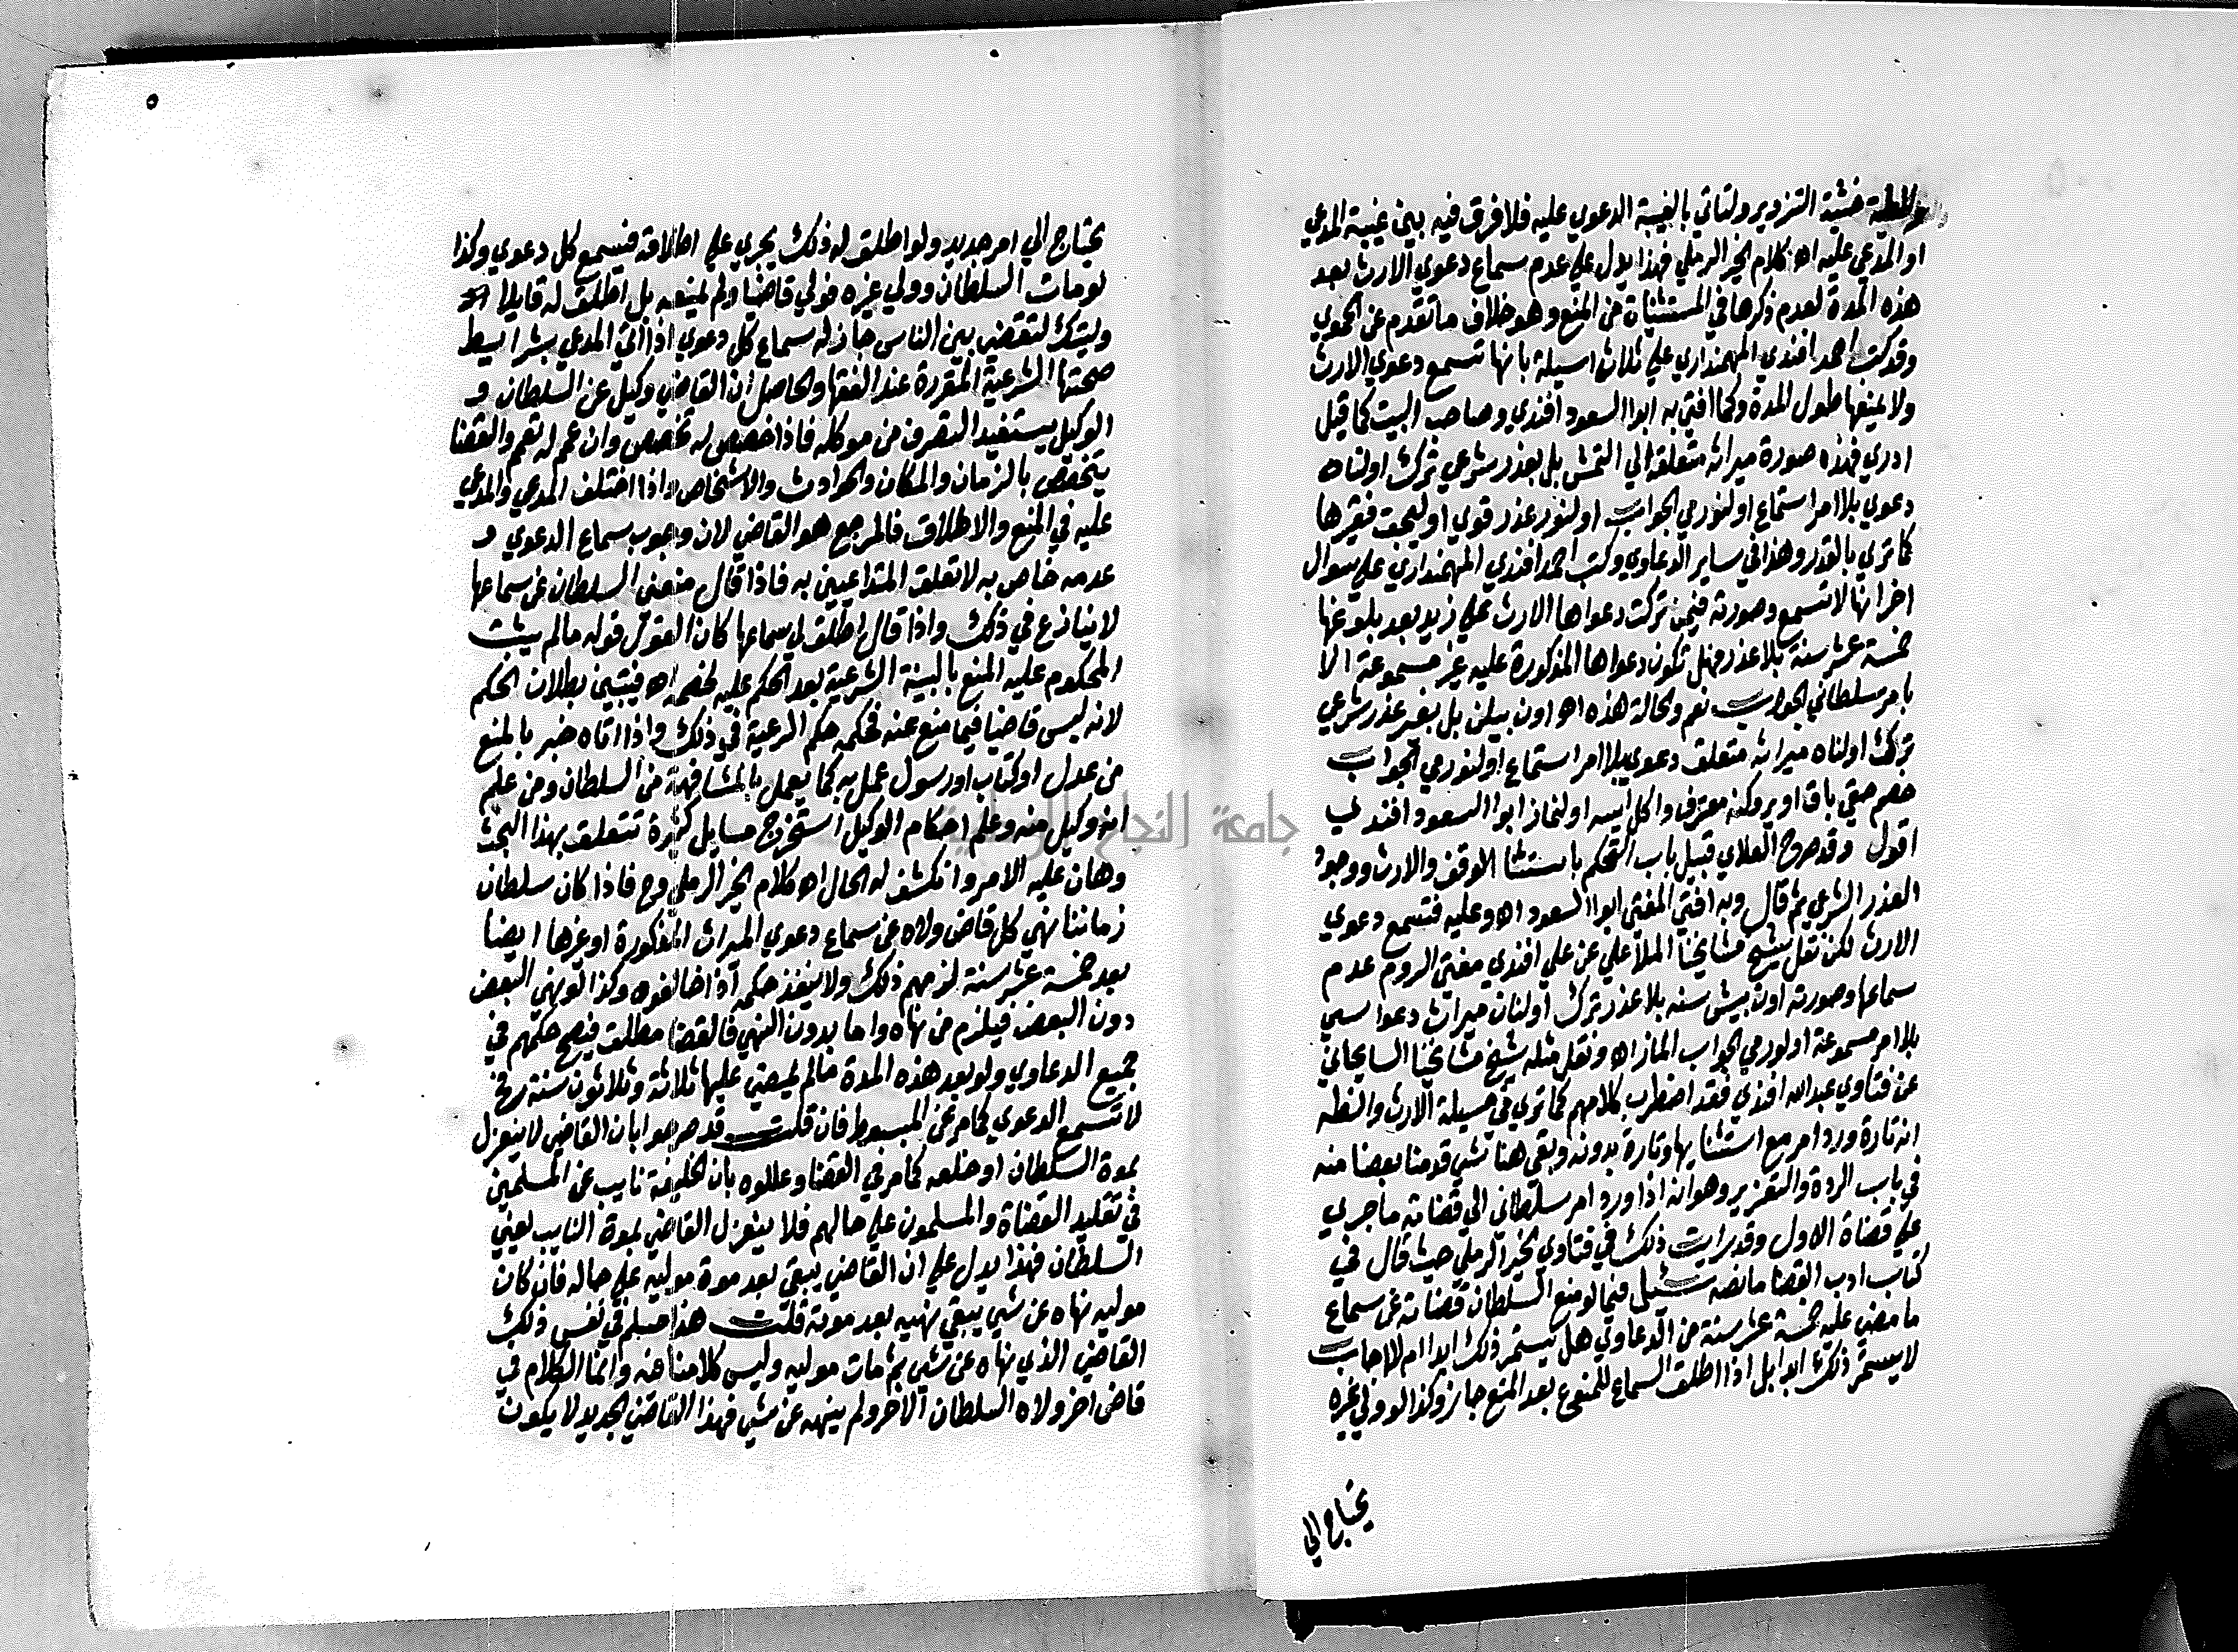 خشية التزوير ولتاتي بالغيبة الدعوي عليه فلا فرق فيه بين غيبة المدعي
او المدعي عليه اه كلام الخير الرملي فهذا يدل علي عدم سماع دعوي الارث بعد
هذه المدة لعدم ذكرها في المستثنيات من المنع وهو خلاف ما تقدم عن الحموي
وقد كتب احمد افندي المهمنداري علي ثلاث اسيلة بانها تسمع دعوي الارث
ولا يمنعها طول المدة وكما افتي به ابوا السعود افندي وصاحب البيت كما قيل
ادري فهذه صورة ميراثه متعلقه الي التمش بل بعذر شرعي ترك اولنان
دعوي بلا امر استماع اولنورمي الجواب اولنور عذر قوي اوليجق فيقرها
كما تري بالقدر وهذا في ساير الدعاوي وكتب احمد افندي المهمنداري علي سوال
اخر انها لا تسمع وصورته فيمن تركت دعواها الارث علي زيد بعد بلوغها
خمسة عشر سنة بلا عذر فهل تكون دعواها المذكورة عليه غير مسموعة الا
بامر سلطاني الجواب نعم والحالة هذه اه اون بيلن بل بغير عذر شرعي
ترك اولناه ميراثه متعلق دعوي بلا امر استماع اولنورمي الجواب
خصم حقي باق اويروكنه معترف واكل ايسه اولنماز ابوا السعود افندي
اقول وقد صرح العلاي قبيل باب التحكم باستثنا الوقف والارث ووجود
العذر الشرعي ثم قال وبه افتي المفتي ابوا السعود اه وعليه فتسمع دعوي
الارث لكن نقل شيخ مشايخنا الملا علي عن علي افندي مفتي الروم عدم
سماعها وصورته اون بيش سنه بلا عذر ترك اولنان ميراث دعوا سي
بلا امر مسموعة اولورمي الجواب الماز اه ونقل مثله شيخ مشايخنا السايحاني
عن فتاوي عبد الله افندي فقد اضطرب كلامهم كما تري في مسيلة الارث والظنه
انه تارة ورد امر مع استثنايها وتارة بدونه وبقي هنا شي قدمنا بعضا منه
في باب الردة والتعزير وهو انه اذا ورد امر سلطاني الي قضاته ما جري
علي قضاة الاول وقد رايت ذلك في فتاوي الخير الرملي حيث قال في
كتاب ادب القضا ما نصه سئيل فيما لو منع السلطان قضاته عن سماع
ما مضي عليه خمسة عشر سنة من الدعاوي هل يستمر ذلك ابدا ام لا اجاب
لا يستمر ذلك ابدا بل اذا اطلق السماع للممنوع بعد المنع جاز وكذا لو ولي غيره
يحتاج الي
يحتاج الي امر جديد ولو اطلق له ذلك يجري علي اطلاقه فتسمع كل دعوي وكذا
لو مات السلطان وولي غيره فولي قاضيا ولم يمنعه بل اطلق له قايلا
وليتك لتقضي بين الناس جاز له سماع كل دعوي اذا اتي المدعي بشرايط
صحتها الشرعية المقررة عند الفقها والحاصل ان القاضي وكيل عن السلطان و
الوكيل يستفيد التصرف من موكله فاذا خصص له تخصص وان عمم له تعمم والقضا
يتخصص بالزمان والمكان والحوادث والاشخاص واذا اختلف المدعي والمدعي
عليه في المنع والاطلاق فالمرجع هو القاضي لان وجوب سماع الدعوي و
عدمه خاص به لا تعلق المتداعيين به فاذا قال منعني السلطان عن سماعها
لا ينازع في ذلك واذا قال اطلق لي سماعها كان القول قوله ما لم يثبت
المحكوم عليه المنع بالبينة الشرعية بعد الحكم عليه لخصمه اه فيتبين بطلان الحكم
لانه ليس قاضيا فيما منع عنه فحكمه حكم الرعية في ذلك واذا اتاه خبر بالمنع
من عدل او كتاب او رسول عمل به كما يعمل بالمشافهة من السلطان ومن علم
انه وكيل منه وعلم احكام الوكيل استخرج مسايل كثيرة تتعلق بهذا البحث
وهان عليه الامر وانكشف له الحال اه كلام الخير الرملي وح فاذا كان سلطان
زماننا نهي كل قاض ولاه عن سماع دعوي الميراث المذكورة او غيرها ايضا
بعد خمسة عشر سنة لزمهم ذلك ولا ينفذ حكمهم اذا خالفوه وكذا لو نهي البعض
دون البعض فيلزم من نهاه واما بدون النهي فالقضا مطلق فيصح حكمهم في
جميع الدعاوي ولو بعد هذه المدة ما لم يمضي عليها ثلاثة وثلاثون سنة فح
لا تسمع الدعوي كما مر عن المبسوط فان قلت قد صرحوا بان القاضي لا ينعزل
بموة السلطان او خلعه كما مر في القضا وعللوه بان الخليفة نايب عن المسلمين
في تقليد القضاة والمسلمون علي حالهم فلا ينعزل القاضي بموة النايب يعني
السلطان فهذا يدل علي ان القاضي يبقي بعد موة موليه علي حاله فان كان
موليه نهاه عن شي يبقي نهيه بعد موته قلت هذا مسلم في نفس ذلك
القاضي الذي نهاه عن شي ثم مات موليه وليس كلامنا عنه وانما الكلام في
قاض اخر ولاه السلطان الاخر ولم ينهه عن شي فهذا القاضي الجديد لا يكون
جامعة النجاح الوطنية